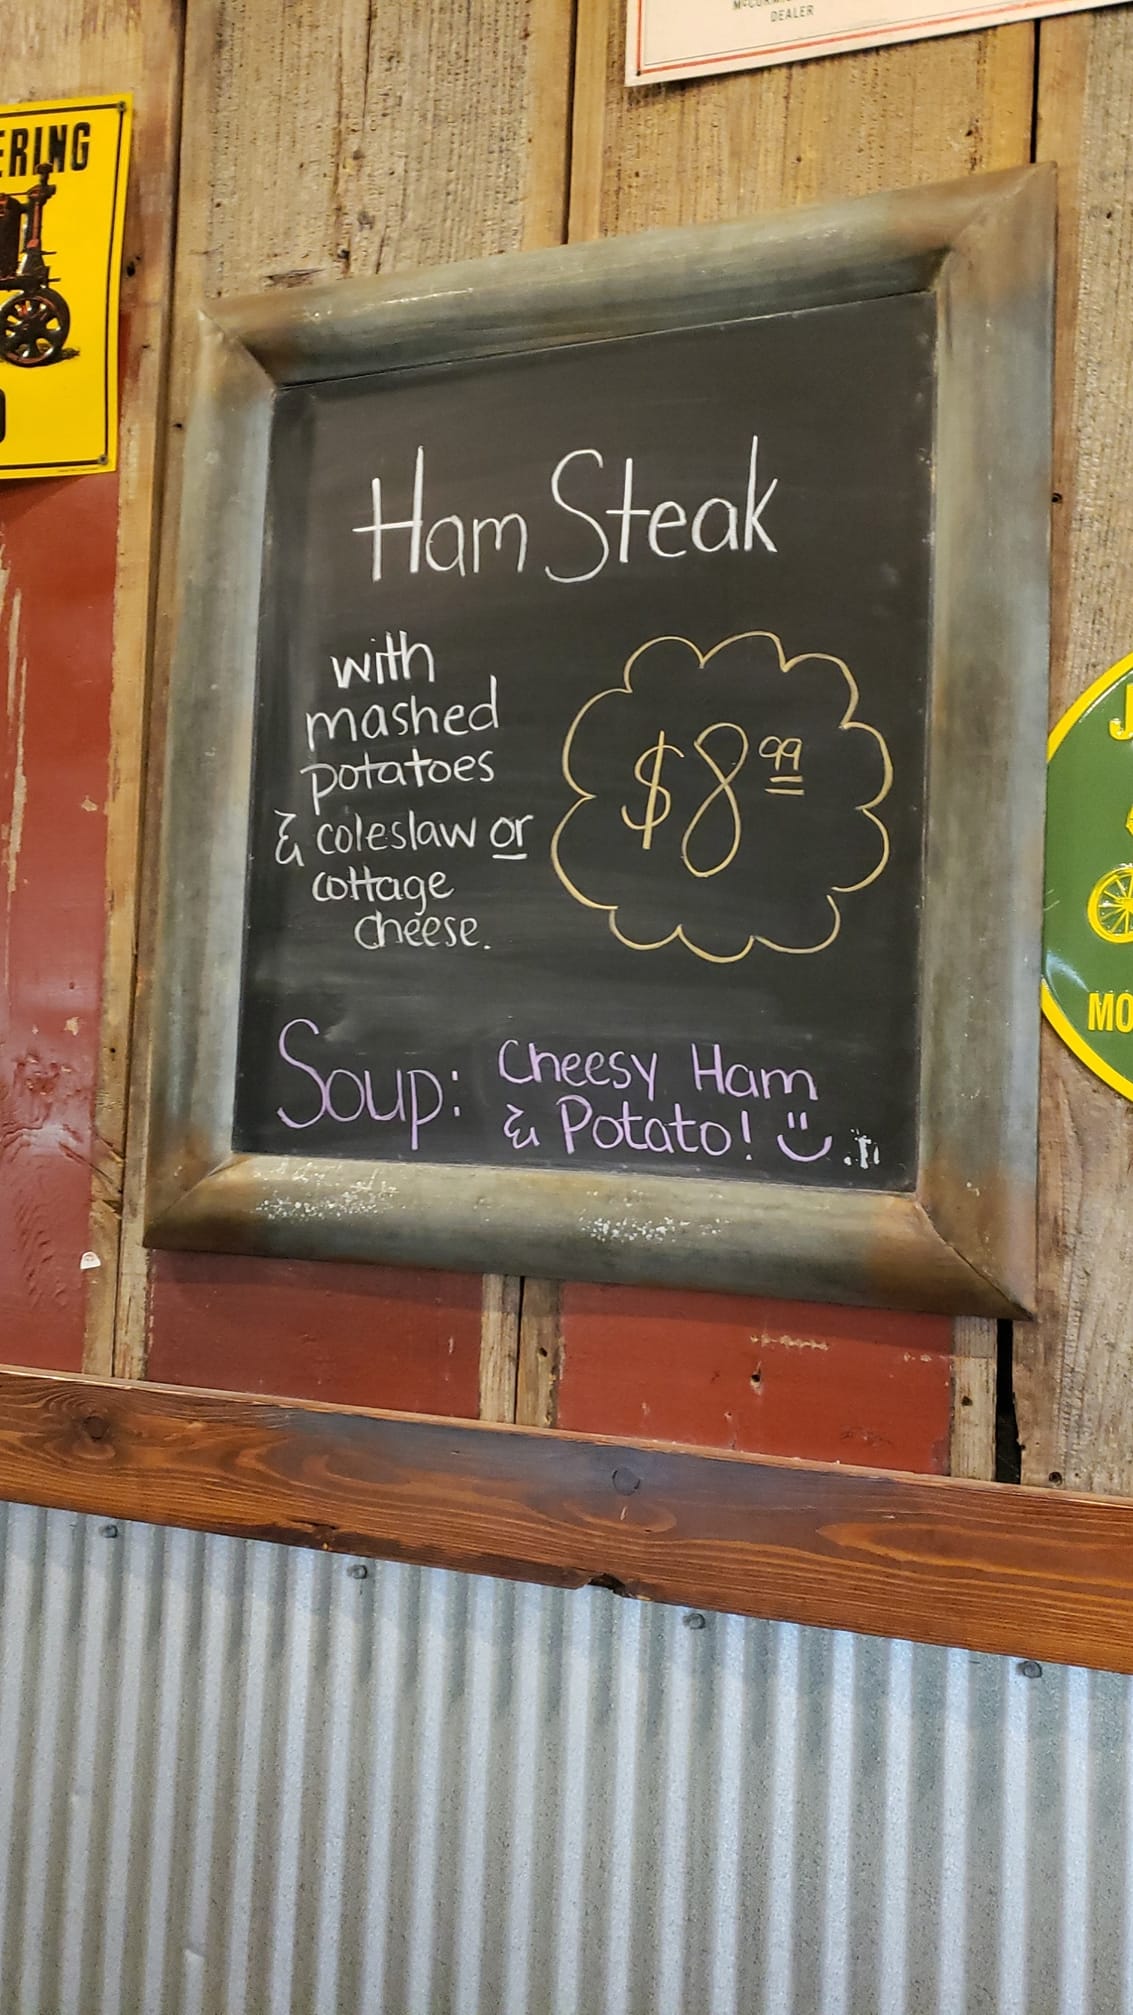 DEALER
ERING
Ham Steak
with
mashed
potatoes
& coleslaw or
cottage
cheese.
$8.99
Soup: Cheesy Ham
& Potato!
MO